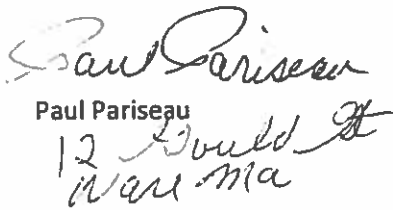 Paul Pariseau
Paul Pariseau
12 Gould St
Ware Ma